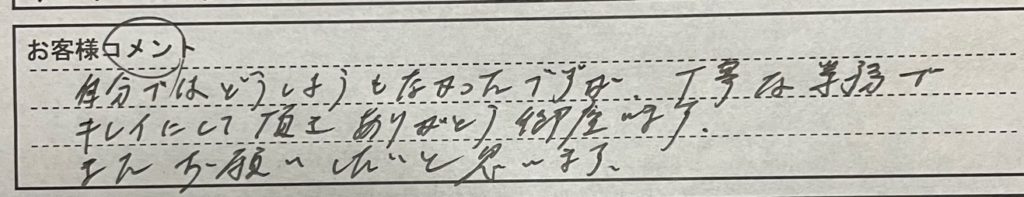 お客様コメント
自分ではどうしようもなかったんですが、丁寧な業務で
キレイにして頂きありがとう御座います。
またお願いしたいと思います。